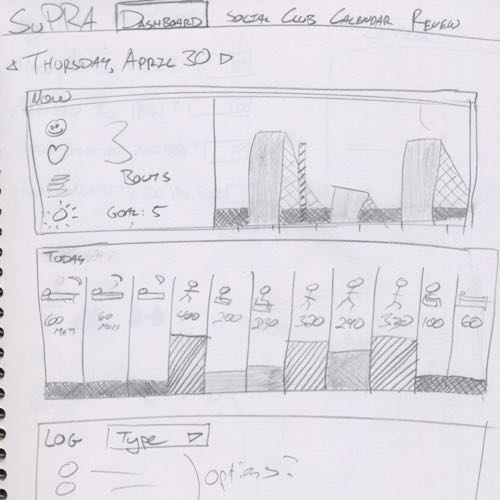 SuPRA DASHBOARD SOCIAL CLUB CALENDAR REVIEW
THURSDAY, APRIL 30
NOW
3
BOUTS
GOAL: 5
TODAY
60 60 400 200 230 320 240 330 100 60
METS METS
LOG Type
options?